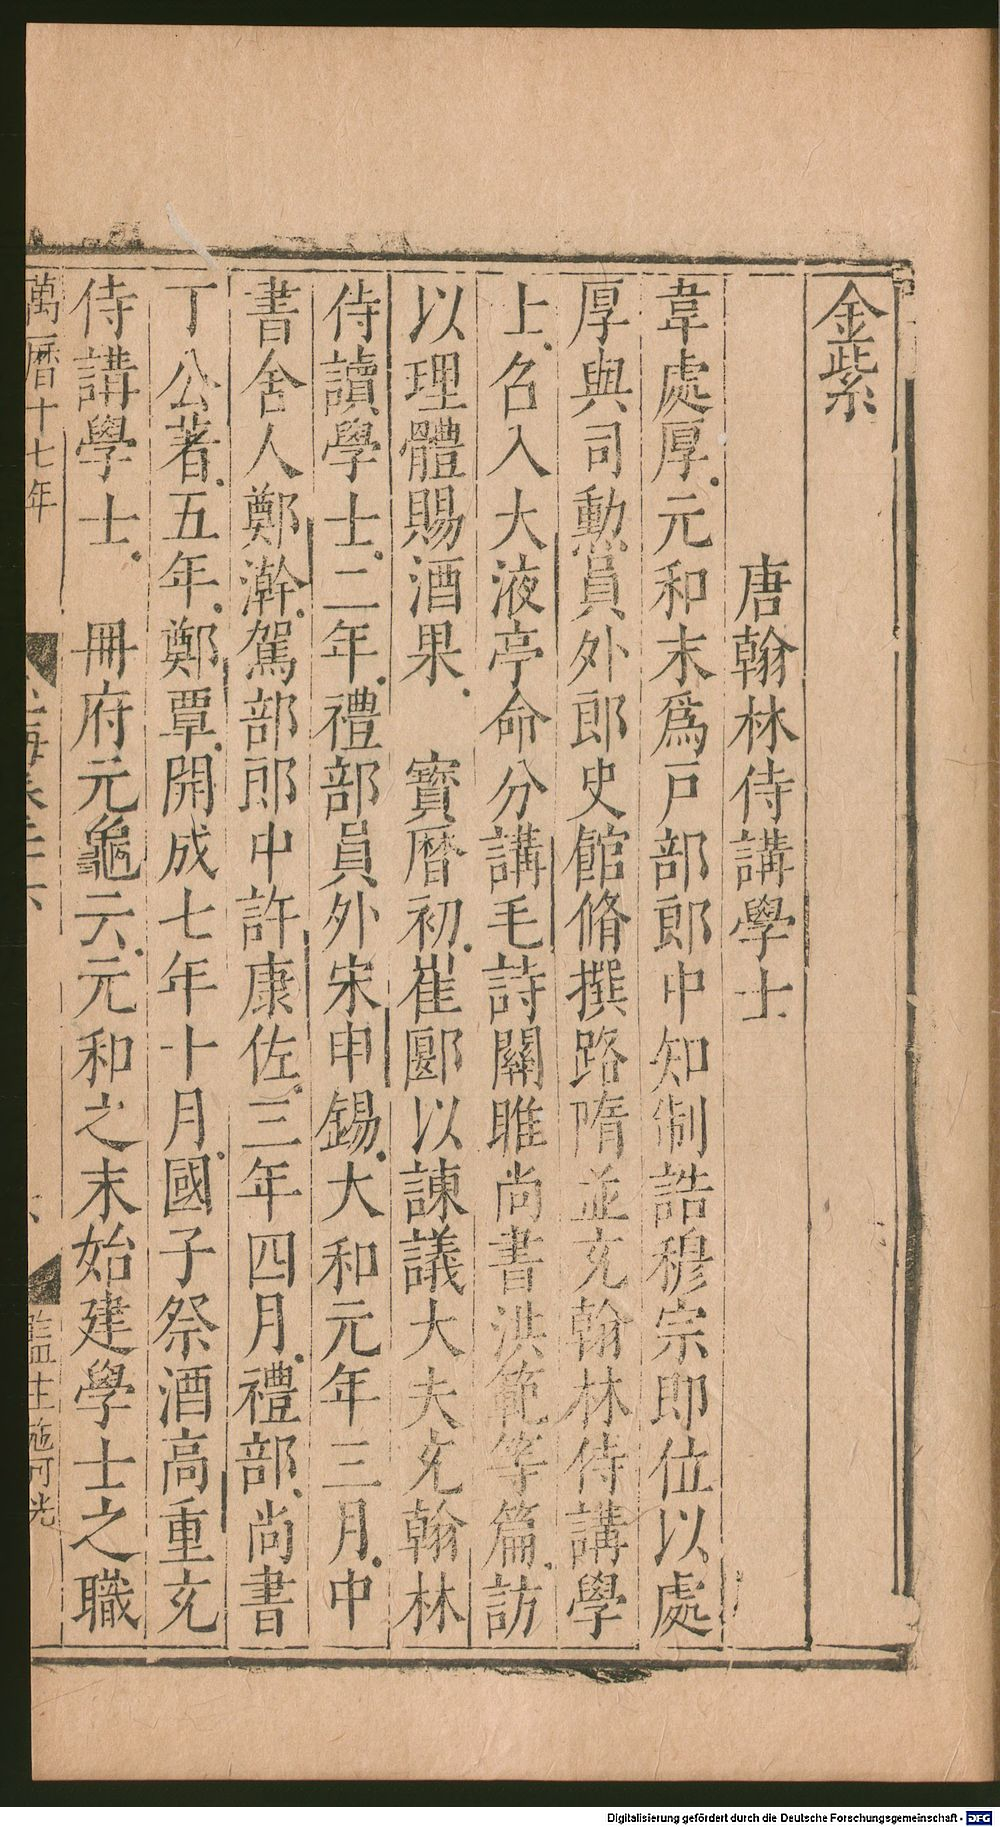 金紫
唐翰林侍講學士
韋處厚元和末爲戸部郎中知制誥穆宗即位以處
厚與司勳員外郎史館脩撰路隋並充翰林侍講學
上名入大液亭命分講毛詩關雎尚書洪範等篇訪
以理體賜酒果　寶曆初崔郾以諫議大夫充翰林
侍讀學士二年禮部員外宋申錫大和元年三月中
書舍人鄭澣駕部郎中許康佐三年四月禮部尚書
丁公著五年鄭覃開成七年十月國子祭酒高重充
侍講學士　冊府元龜云元和之末始建學士之職
萬曆十七年
海卷二十六
監生施可光
Digitalisierung gefördert durch die Deutsche Forschungsgemeinschaft - DFG